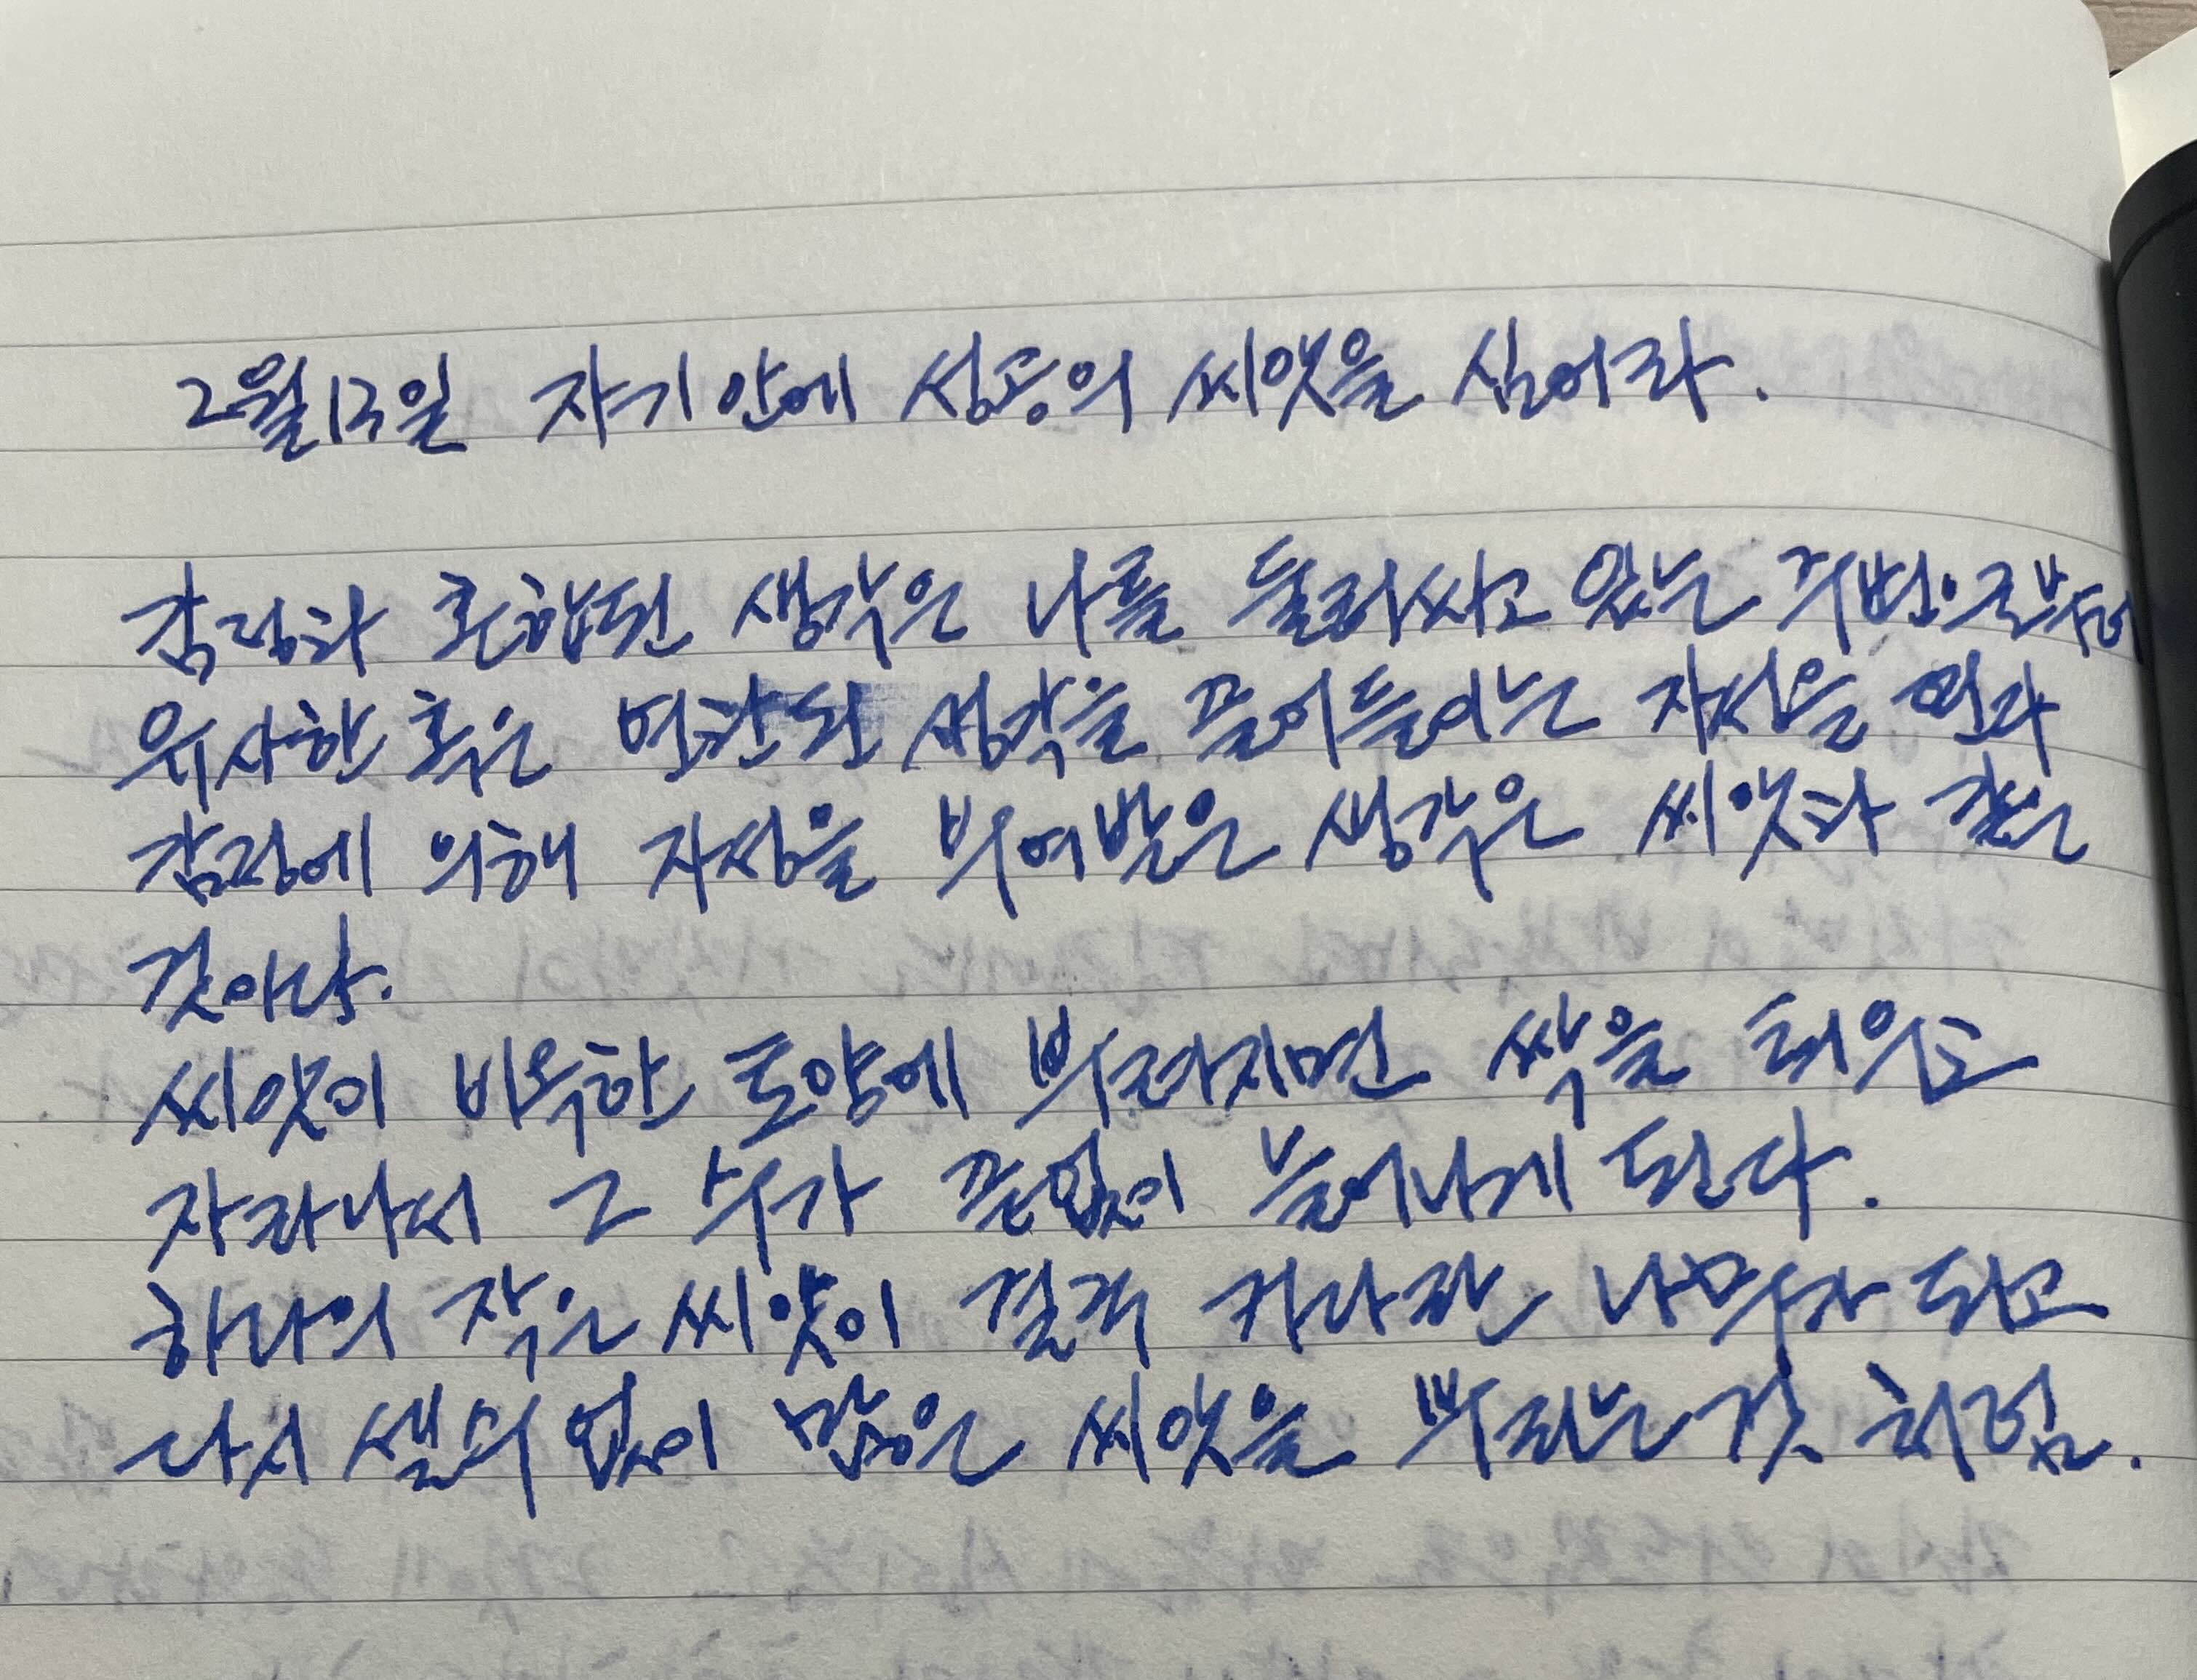 2월13일 자기 안에 성공의 씨앗을 심어라.
감정과 혼합된 생각은 나를 둘러싸고 있는 주변으로부터
유사한 혹은 연관된 생각을 끌어들이는 자성을 띤다
감정에 의해 자성을 부여받은 생각은 씨앗과 같은
것이다.
씨앗이 비옥한 토양에 뿌려지면 싹을 틔우고
자라나서 그 수가 끝없이 늘어나게 된다.
하나의 작은 씨앗이 결국 커다란 나무가 되고
다시 셀수 없이 많은 씨앗을 뿌리는것 처럼.